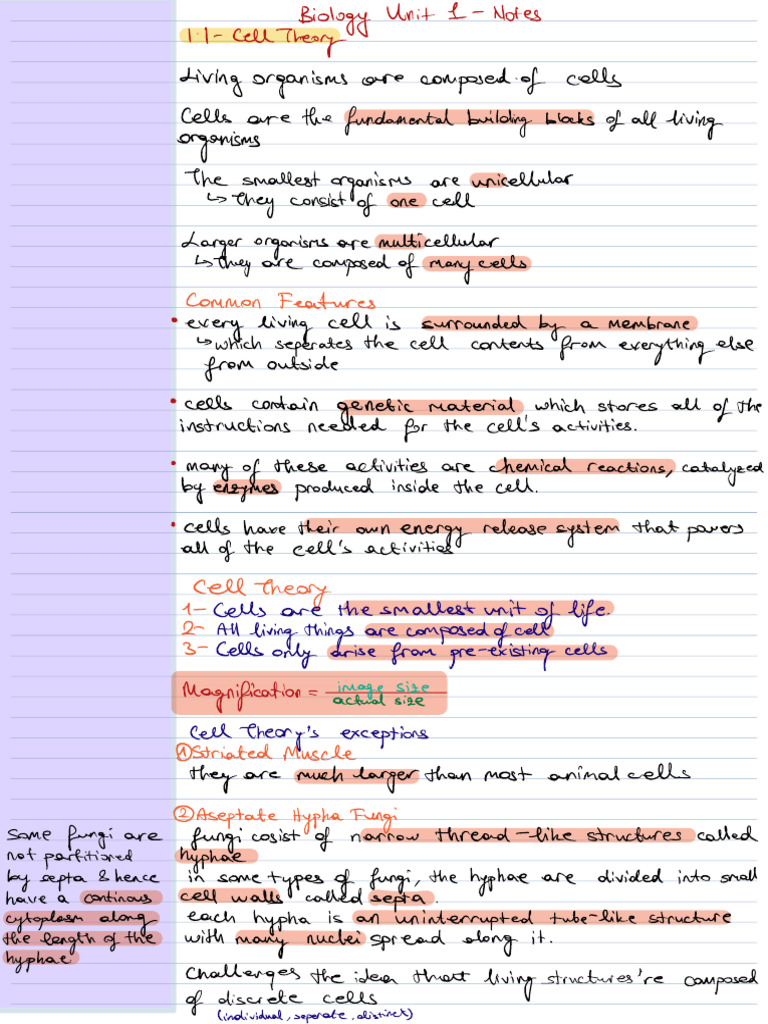 Biology Unit 1 - Notes
1.1 - Cell Theory
Living organisms are composed of cells
Cells are the fundamental building blocks of all living
organisms
The smallest organisms are unicellular
↳ They consist of one cell
Larger organisms are multicellular
↳ they are composed of many cells
Common Features
• every living cell is surrounded by a membrane
↳ which seperates the cell contents from everything else
from outside
• cells contain genetic material which stores all of the
instructions needed for the cell's activities.
• many of these activities are chemical reactions, catalyzed
by enzymes produced inside the cell.
• cells have their own energy release system that powers
all of the cell's activities
Cell Theory
1- Cells are the smallest unit of life.
2- All living things are composed of cell
3- Cells only arise from pre-existing cells
Magnification = image size
actual size
Cell Theory's exceptions
① Striated Muscle
they are much larger than most animal cells
② Aseptate Hypha Fungi
fungi cosist of narrow thread-like structures called
hyphae
in some types of fungi, the hyphae are divided into small
cell walls called septa.
each hypha is an uninterrupted tube-like structure
with many nuclei spread along it.
Some fungi are
not partitioned
by septa & hence
have a continous
cytoplasm along
the length of the
hyphae
Challenges the idea that living structures're composed
of discrete cells
(individual, seperate, distinct)